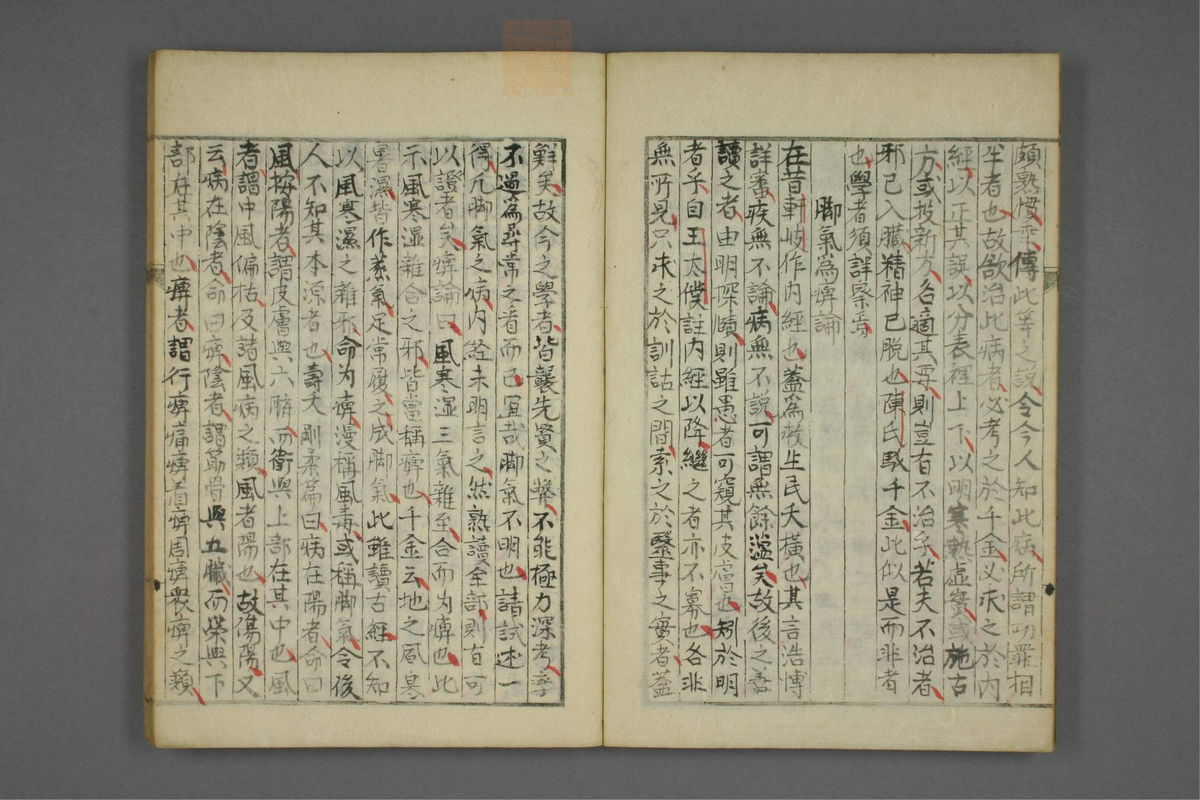 頗熟慣乎傳此等之說令今人知此病所謂功罪相
半者也故欲治此病者必考之於千金必求之於内
經以正其誤以分表裡上下以明寒熱虛實或施古
方或投新方各適其再則豈有不治乎若夫不治者
邪已入臓精神已脱也陳氏駁千金此似是而非者
也學者須詳察焉
脚氣為痺論
在昔軒岐作内經也蓋為救生民夭横也其言浩博
詳審疾無不論病無不說可謂無餘蘊矣故後之善
讀之者由明探賾則雖愚者可窺其皮膚也矧於明
者乎自王太僕註内經以降繼之者亦不寡也各非
無所見只求之於訓詁之間索之於緊事之實者蓋
鮮矣故今之學者皆襲先賢之弊不能極力深考卒
不過為尋常之看而已宜哉脚氣不明也請試述一
得凡脚氣之病内経未明言之然熟讀全部則有可
以證者矣痺論曰風寒湿三氣雜至合而为痺也此
示風寒湿雜合之邪皆當稱痺也千金云地之風寒
暑濕皆作蒸氣足常履之成脚氣此雖讀古經不知
以風寒濕之雜邪命为痺漫稱風毒或稱脚氣令後
人不知其本源者也壽夭剛柔篇曰病在陽者命曰
風按陽者謂皮膚與六腑而衛與上部在其中也風
者謂中風偏枯及諸風病之類風者陽也故傷陽又
云病在陰者命曰痺陰者謂筋骨與五臓而榮與下
部在其中也痺者謂行痺痛痺着痺周痺衆痺之類